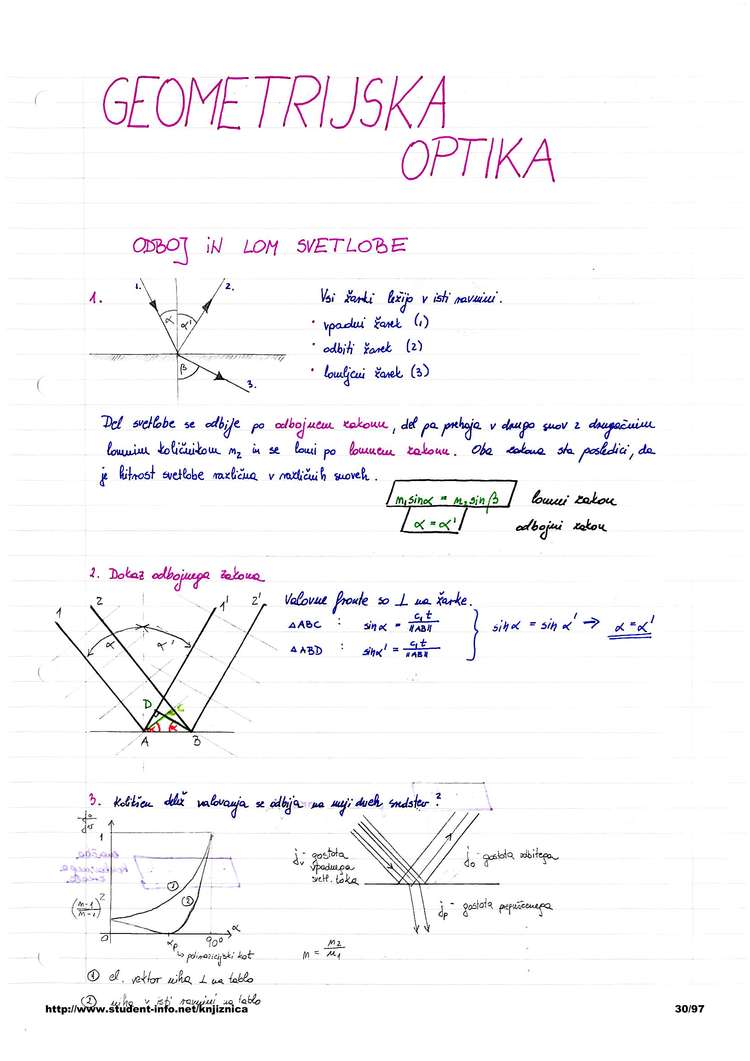 GEOMETRIJSKA
OPTIKA
ODBOJ IN LOM SVETLOBE
1.
1.
2.
α
α'
β
3.
Vsi žarki ležijo v isti ravnini.
• vpadni žarek (1)
• odbiti žarek (2)
• lomljeni žarek (3)
Del svetlobe se odbije po odbojnem zakonu, del pa prehaja v drugo snov z drugačnim
lomnim količnikom n₂ in se lomi po lomnem zakonu. Oba zakona sta posledici, da
je hitrost svetlobe različna v različnih snoveh.
n₁ sinα = n₂ sinβ lomni zakon
α = α' odbojni zakon
2. Dokaz odbojnega zakona
1
2
1'
2'
α
α'
D
C
A
B
Valovne fronte so ⊥ na žarke.
△ABC : sinα = c₁t / ||AB||
△ABD : sinα' = c₁t / ||AB||
sinα = sin α' → α = α'
3. Kolikšen delež valovanja se odbija na meji dveh sredstev?
1
0
αp
90°
α
↳ polarizacijski kot
①
②
jᵥ - gostota
vpadnega
svetl. toka
j₀ - gostota odbitega
jp - gostota prepuščenega
n = n₂ / n₁
① el. vektor niha ⊥ na tablo
② niha v isti ravnini na tablo
http://www.student-info.net/knjiznica
30/97